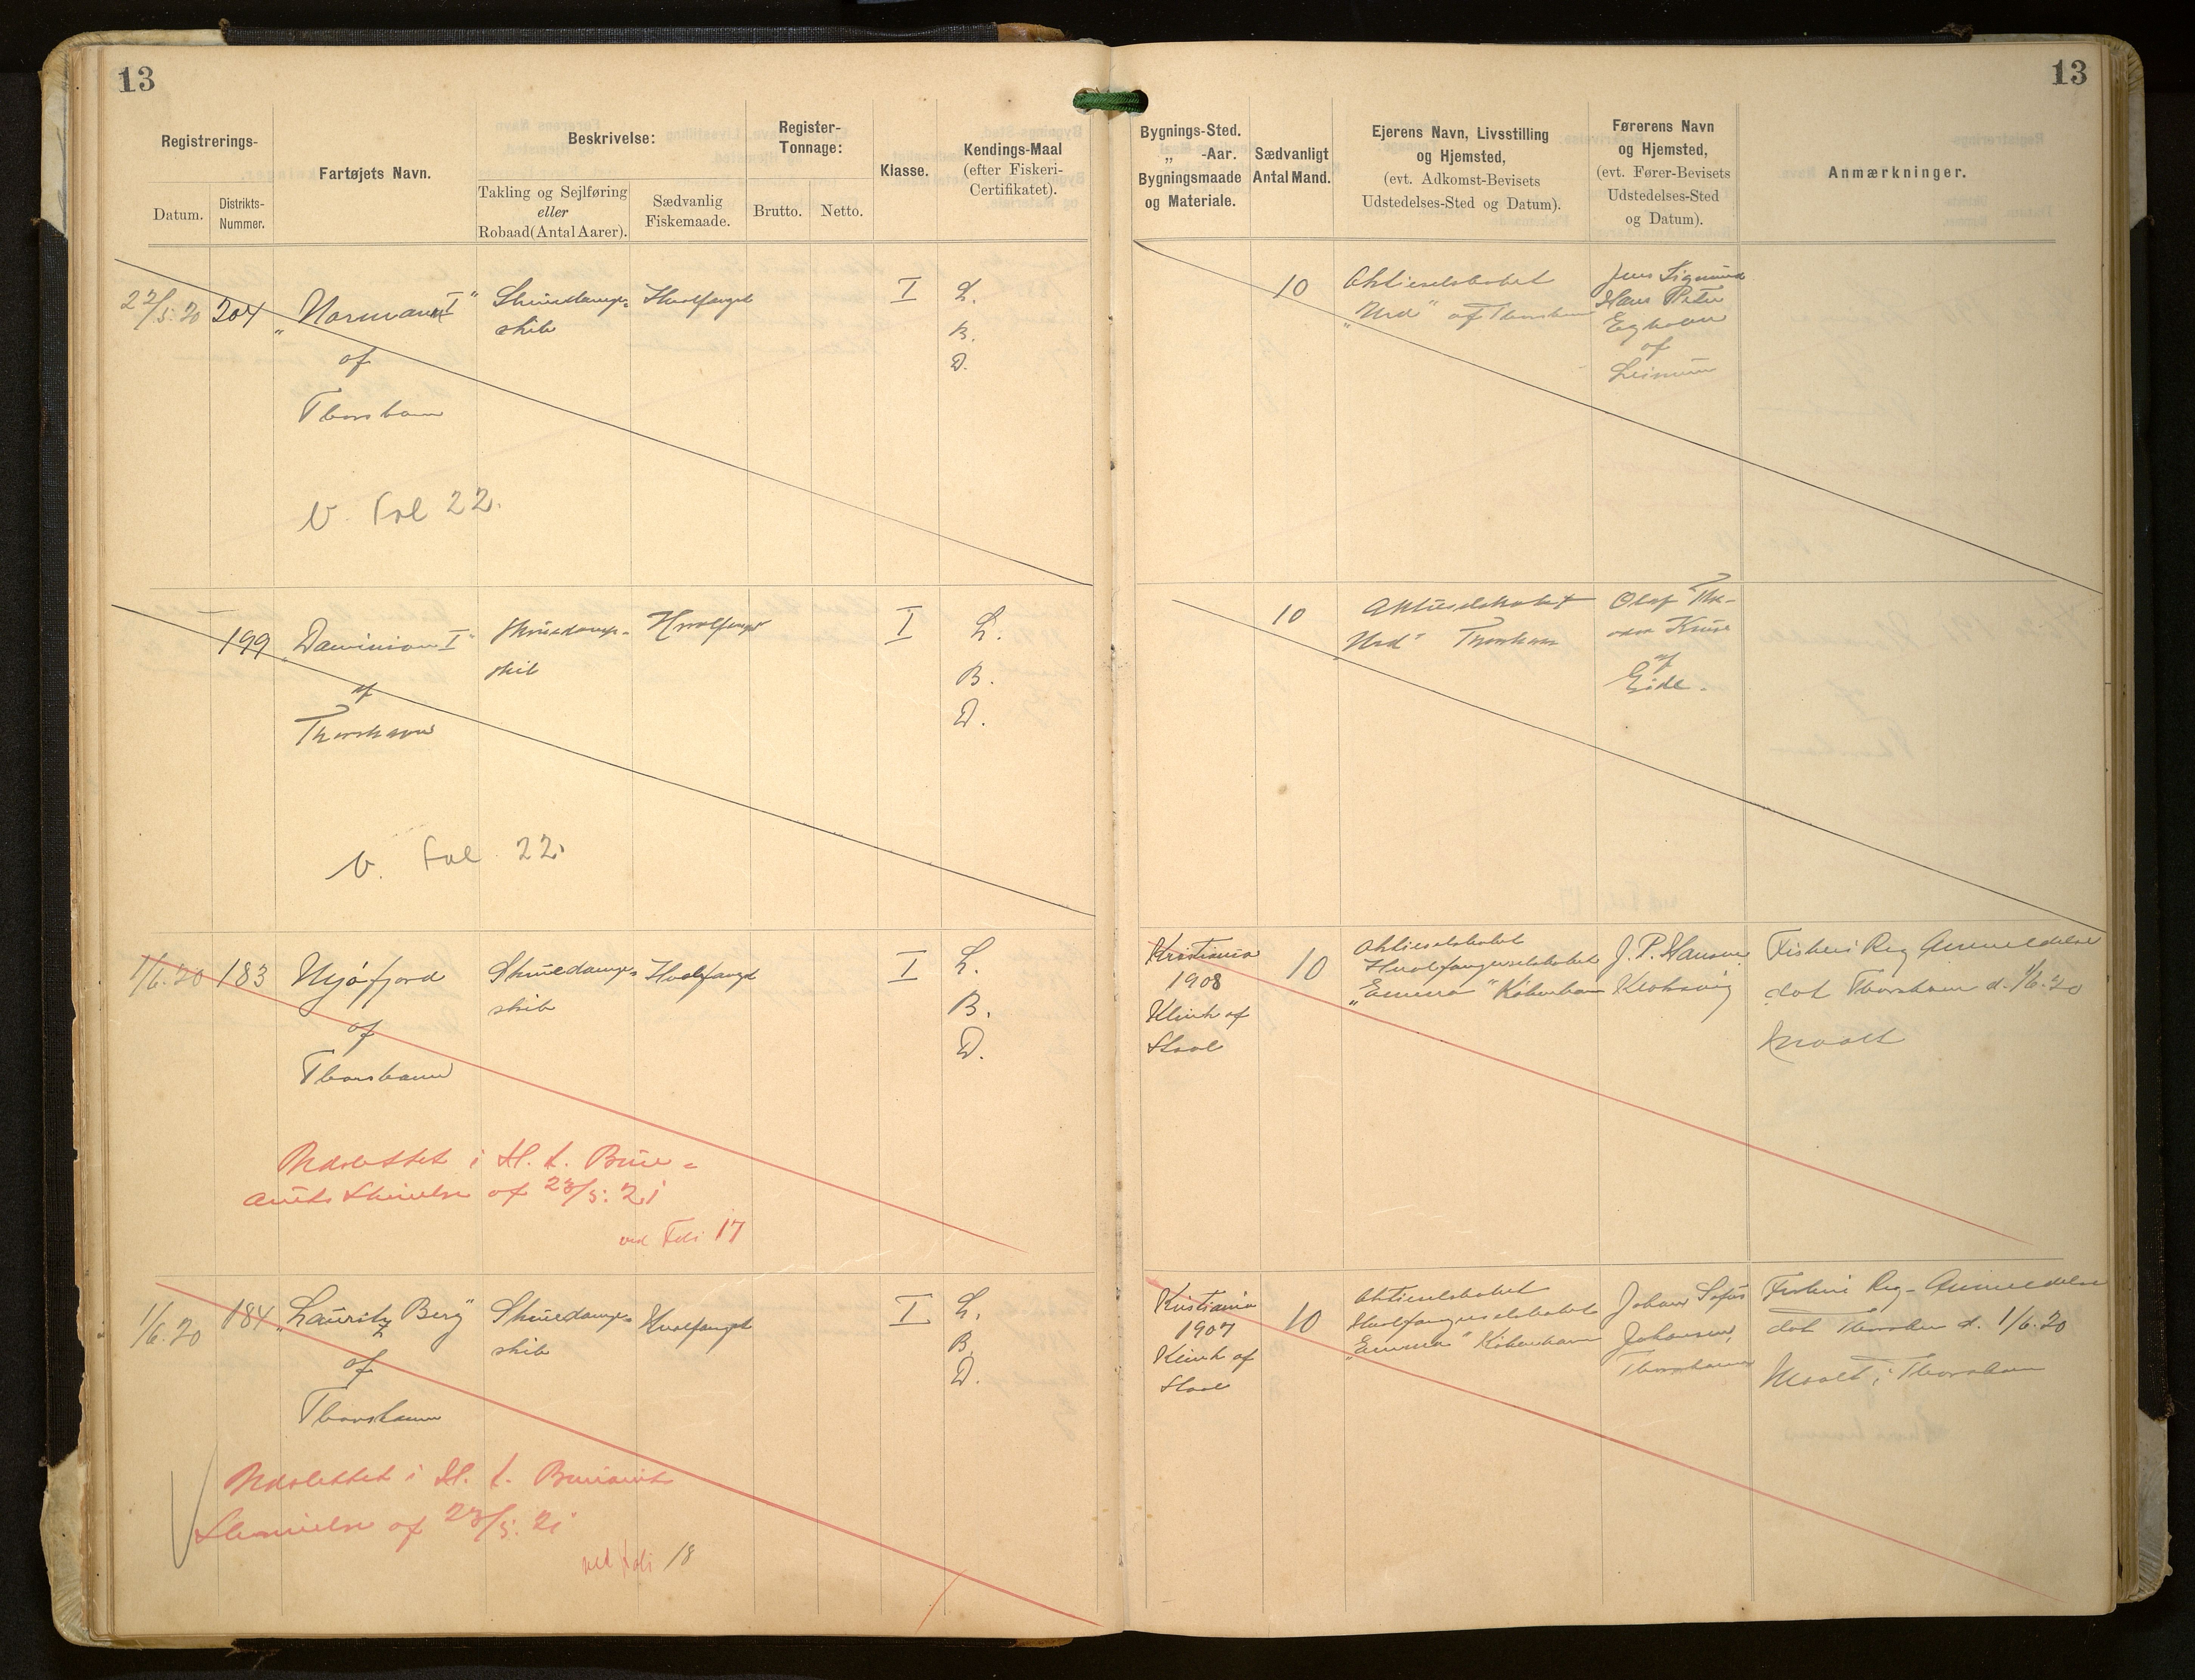 13
13
Registrerings-
Datum.
Distrikts-
Nummer.
Fartøjets Navn.
Beskrivelse:
Takling og Sejlføring
eller
Robaad (Antal Aarer).
Sædvanlig
Fiskemaade.
Register-
Tonnage:
Brutto.
Netto.
Klasse.
Kendings-Maal
(efter Fiskeri-
Certifikatet).
Bygnings-Sted.
„ -Aar.
Bygningsmaade
og Materiale.
Sædvanligt
Antal Mand.
Ejerens Navn, Livsstilling
og Hjemsted,
(evt. Adkomst-Bevisets
Udstedelses-Sted og Datum).
Førerens Navn
og Hjemsted,
(evt. Fører-Bevisets
Udstedelses-Sted
og Datum).
Anmærkninger.
22/5. 20
204
„Normann I"
af
Thorshavn
Skruedamp-
skib
Hvalfangst
I
L.
B.
D.
10
Aktieselskabet
„Urd" af Thorshavn
Jens Sigmund
Hans Peter
Egholm
af
V. Fol 22.
199
„Dominion I"
af
Thorshavn
Skruedamp-
skib
Hvalfangst
I
L.
B.
D.
10
Aktieselskabet
„Urd" Thorshavn
Olaf
Kruse
af
Eide.
V. Fol 22.
1/6. 20
183
Mjófjord
af
Thorshavn
Skruedamp-
skib
Hvalfangst
I
L.
B.
D.
Kristiania
1908
Klink af
Staal
10
Aktieselskabet
Hvalfangerselskabet
„Emma" København
J. P. Hansen,
Klaksvig
Fiskeri Reg Anmeldelse
dat Thorshavn d. 1/6. 20
Maalt
Udslettet i H. t. Bure-
auets Skrivelse af 23/5. 21
ved Foli 17
1/6. 20
184
„Lauritz Berg"
af
Thorshavn
Skruedamp-
skib
Hvalfangst
I
L.
B.
D.
Kristiania
1907
Klink af
Staal
10
Aktieselskabet
Hvalfangerselskabet
„Emma" København
Johan Sofus
Johansen,
Thorshavn
Fiskeri Reg-Anmeldelse
dat Thorshavn d. 1/6. 20
Maalt i Thorshavn
Udslettet i H. t. Bureauets
Skrivelse af 23/5. 21
ved Foli 18